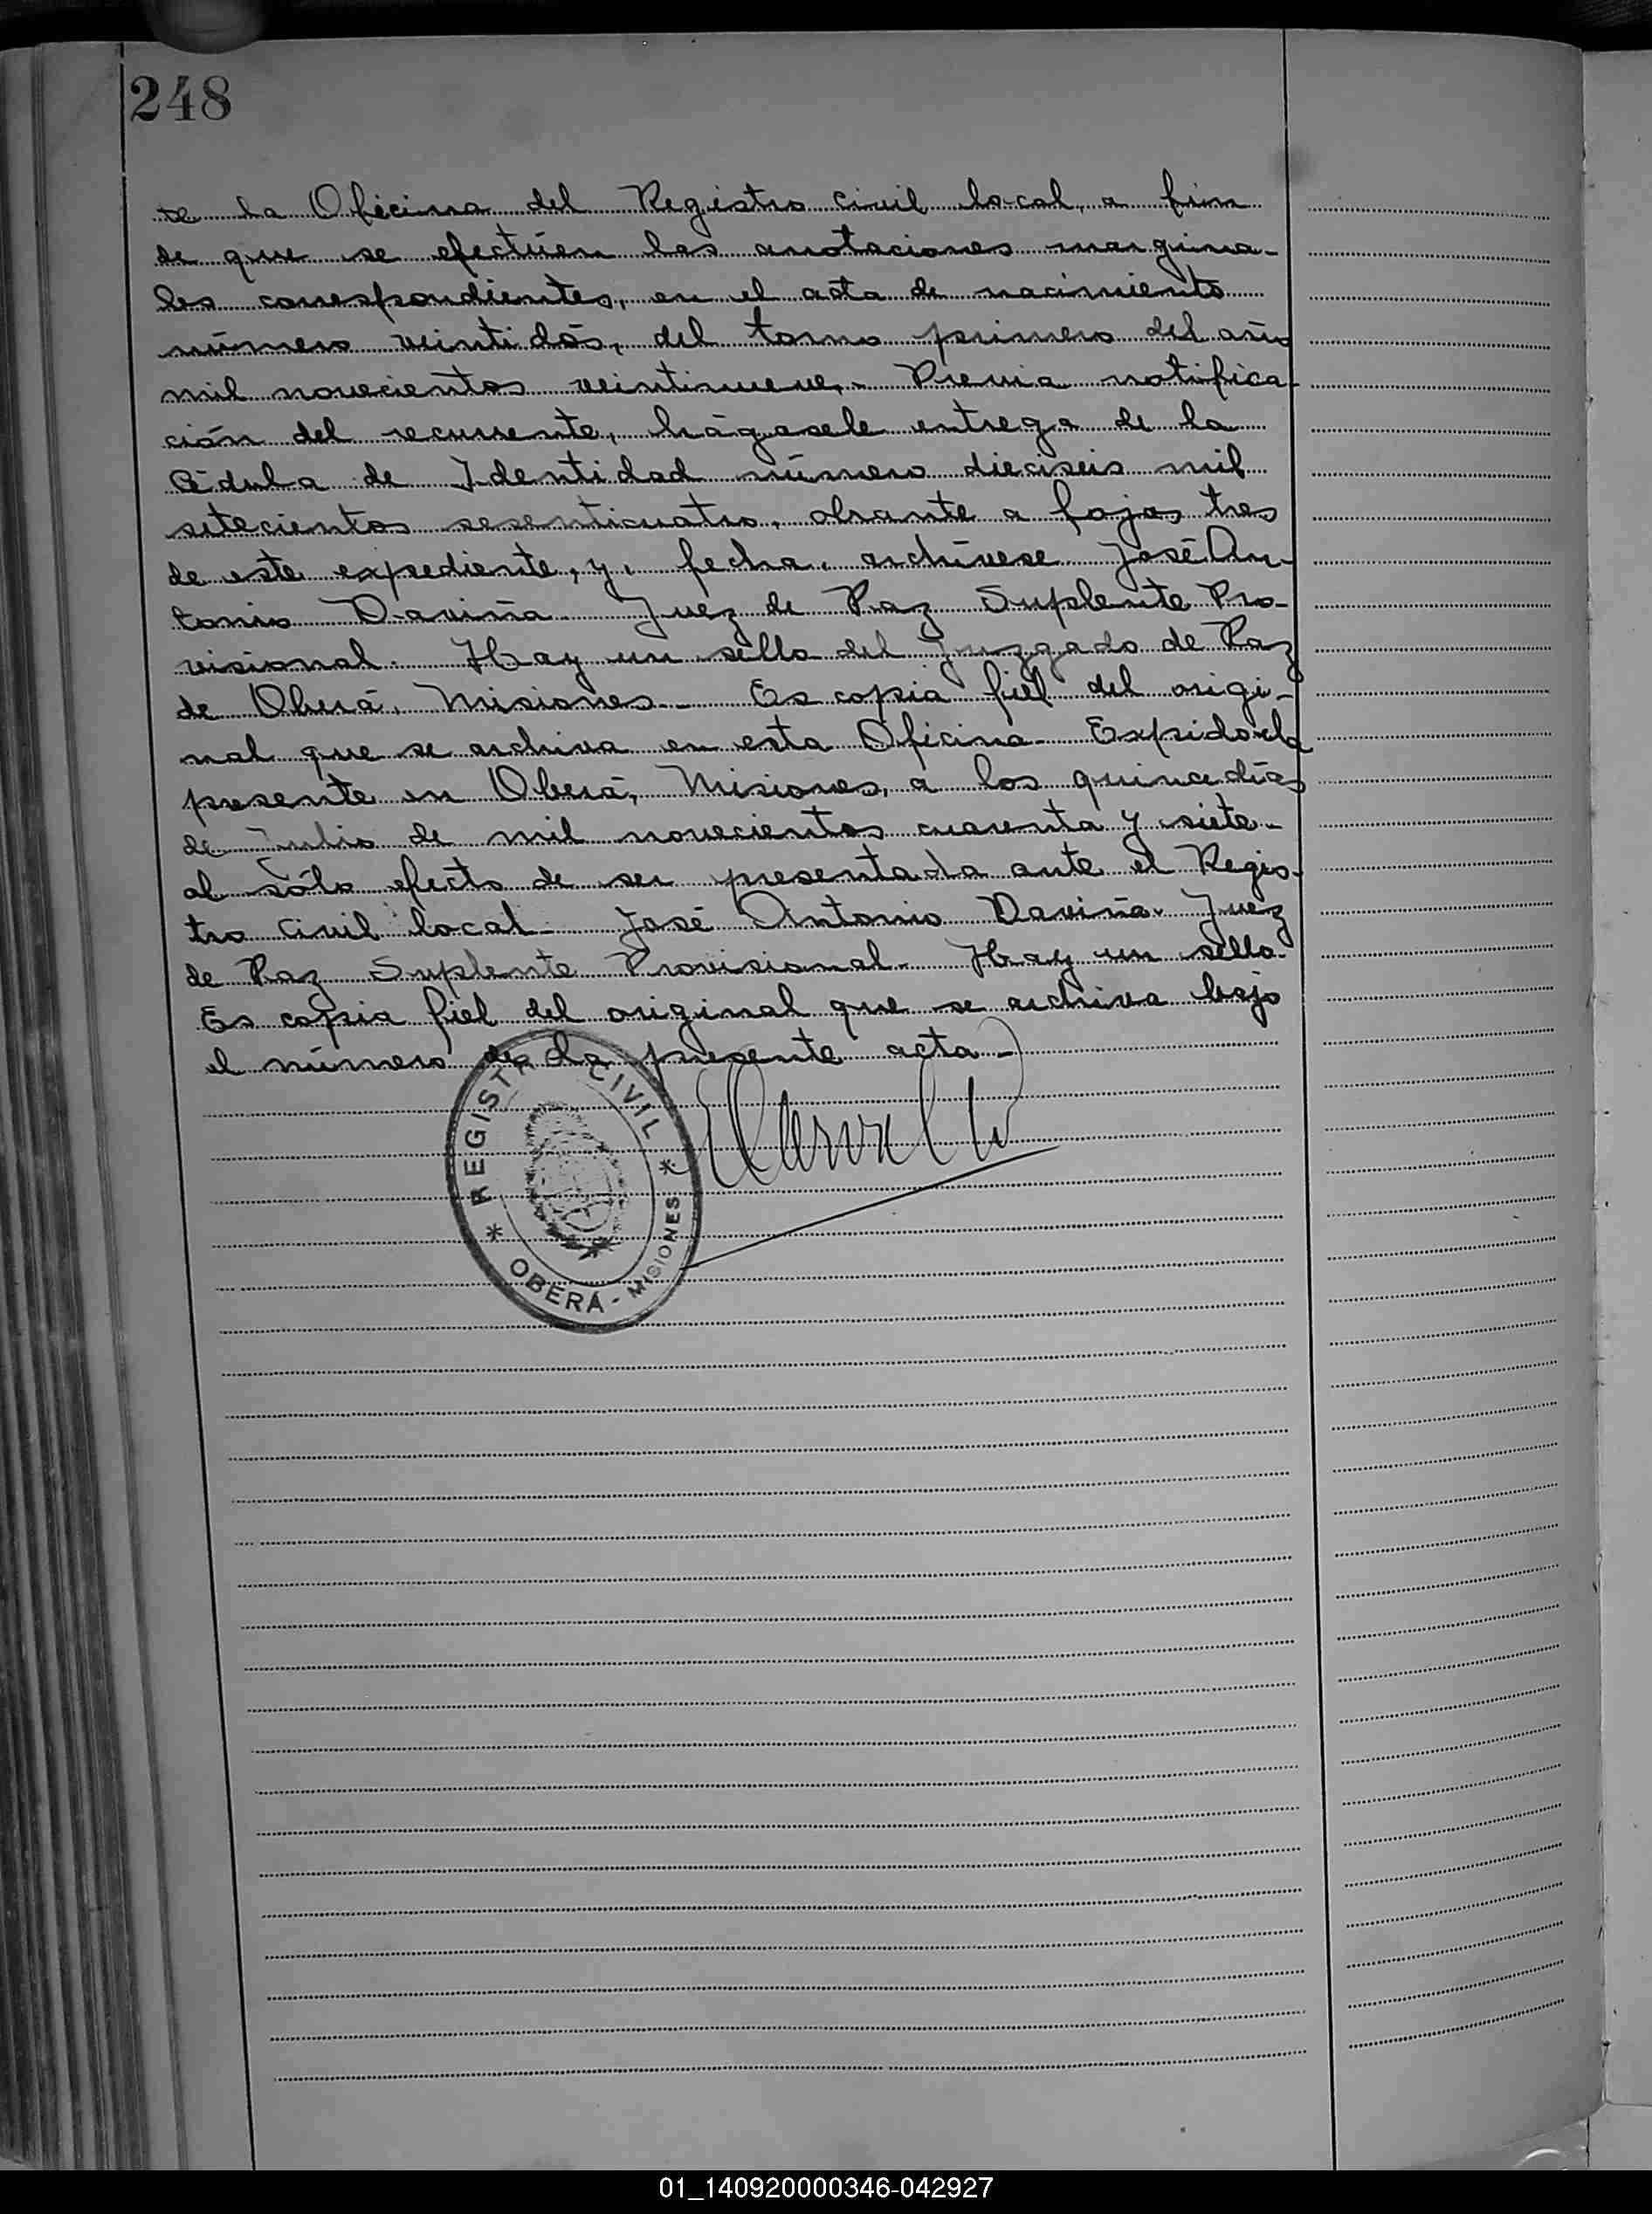 248
te la Oficina del Registro Civil local, a fin
de que se efectúen las anotaciones margina-
les correspondientes, en el acta de nacimiento
número veintidós, del tomo primero del año
mil novecientos veintinueve.- Previa notifica-
ción del recurrente, hágasele entrega de la
Cédula de Identidad número dieciseis mil
setecientos sesenticuatro, obrante a fojas tres
de este expediente, y, fecha, archívese. José An-
tonio Daviña. Juez de Paz Suplente Pro-
visional. Hay un sello del Juzgado de Paz
de Oberá, Misiones.- Es copia fiel del origi-
nal que se archiva en esta Oficina.- Expido la
presente en Oberá, Misiones, a los quince días
de Julio de mil novecientos cuarenta y siete.-
al sólo efecto de ser presentada ante el Regis-
tro Civil local.- José Antonio Daviña. Juez
de Paz Suplente Provisional.- Hay un sello.
Es copia fiel del original que se archiva bajo
el número de la presente acta.-
REGISTRO CIVIL
* OBERÁ - MISIONES *
01_140920000346-042927